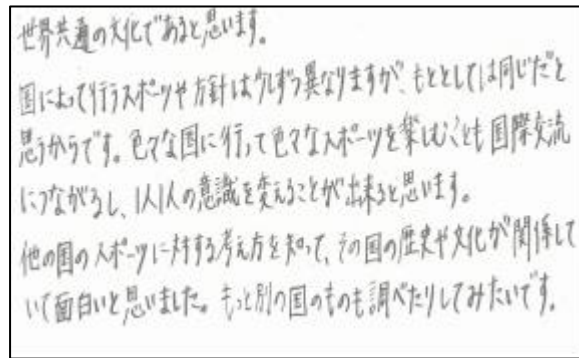 世界共通の文化であると思います。
国によって行うスポーツや方針は少しずつ異なりますが、もととしては同じだと
思うからです。色々な国に行って色々なスポーツを楽しむことも国際交流
につながるし、1人1人の意識を変えることが出来ると思います。
他の国のスポーツに対する考え方を知って、その国の歴史や文化が関係して
いて面白いと思いました。もっと別の国のものも調べたりしてみたいです。